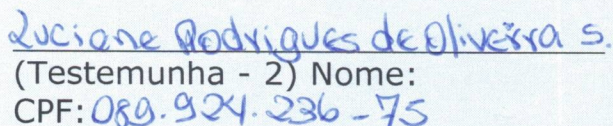 Luciane Rodrigues de Oliveira S.
(Testemunha - 2) Nome:
CPF: 089.924.236-75